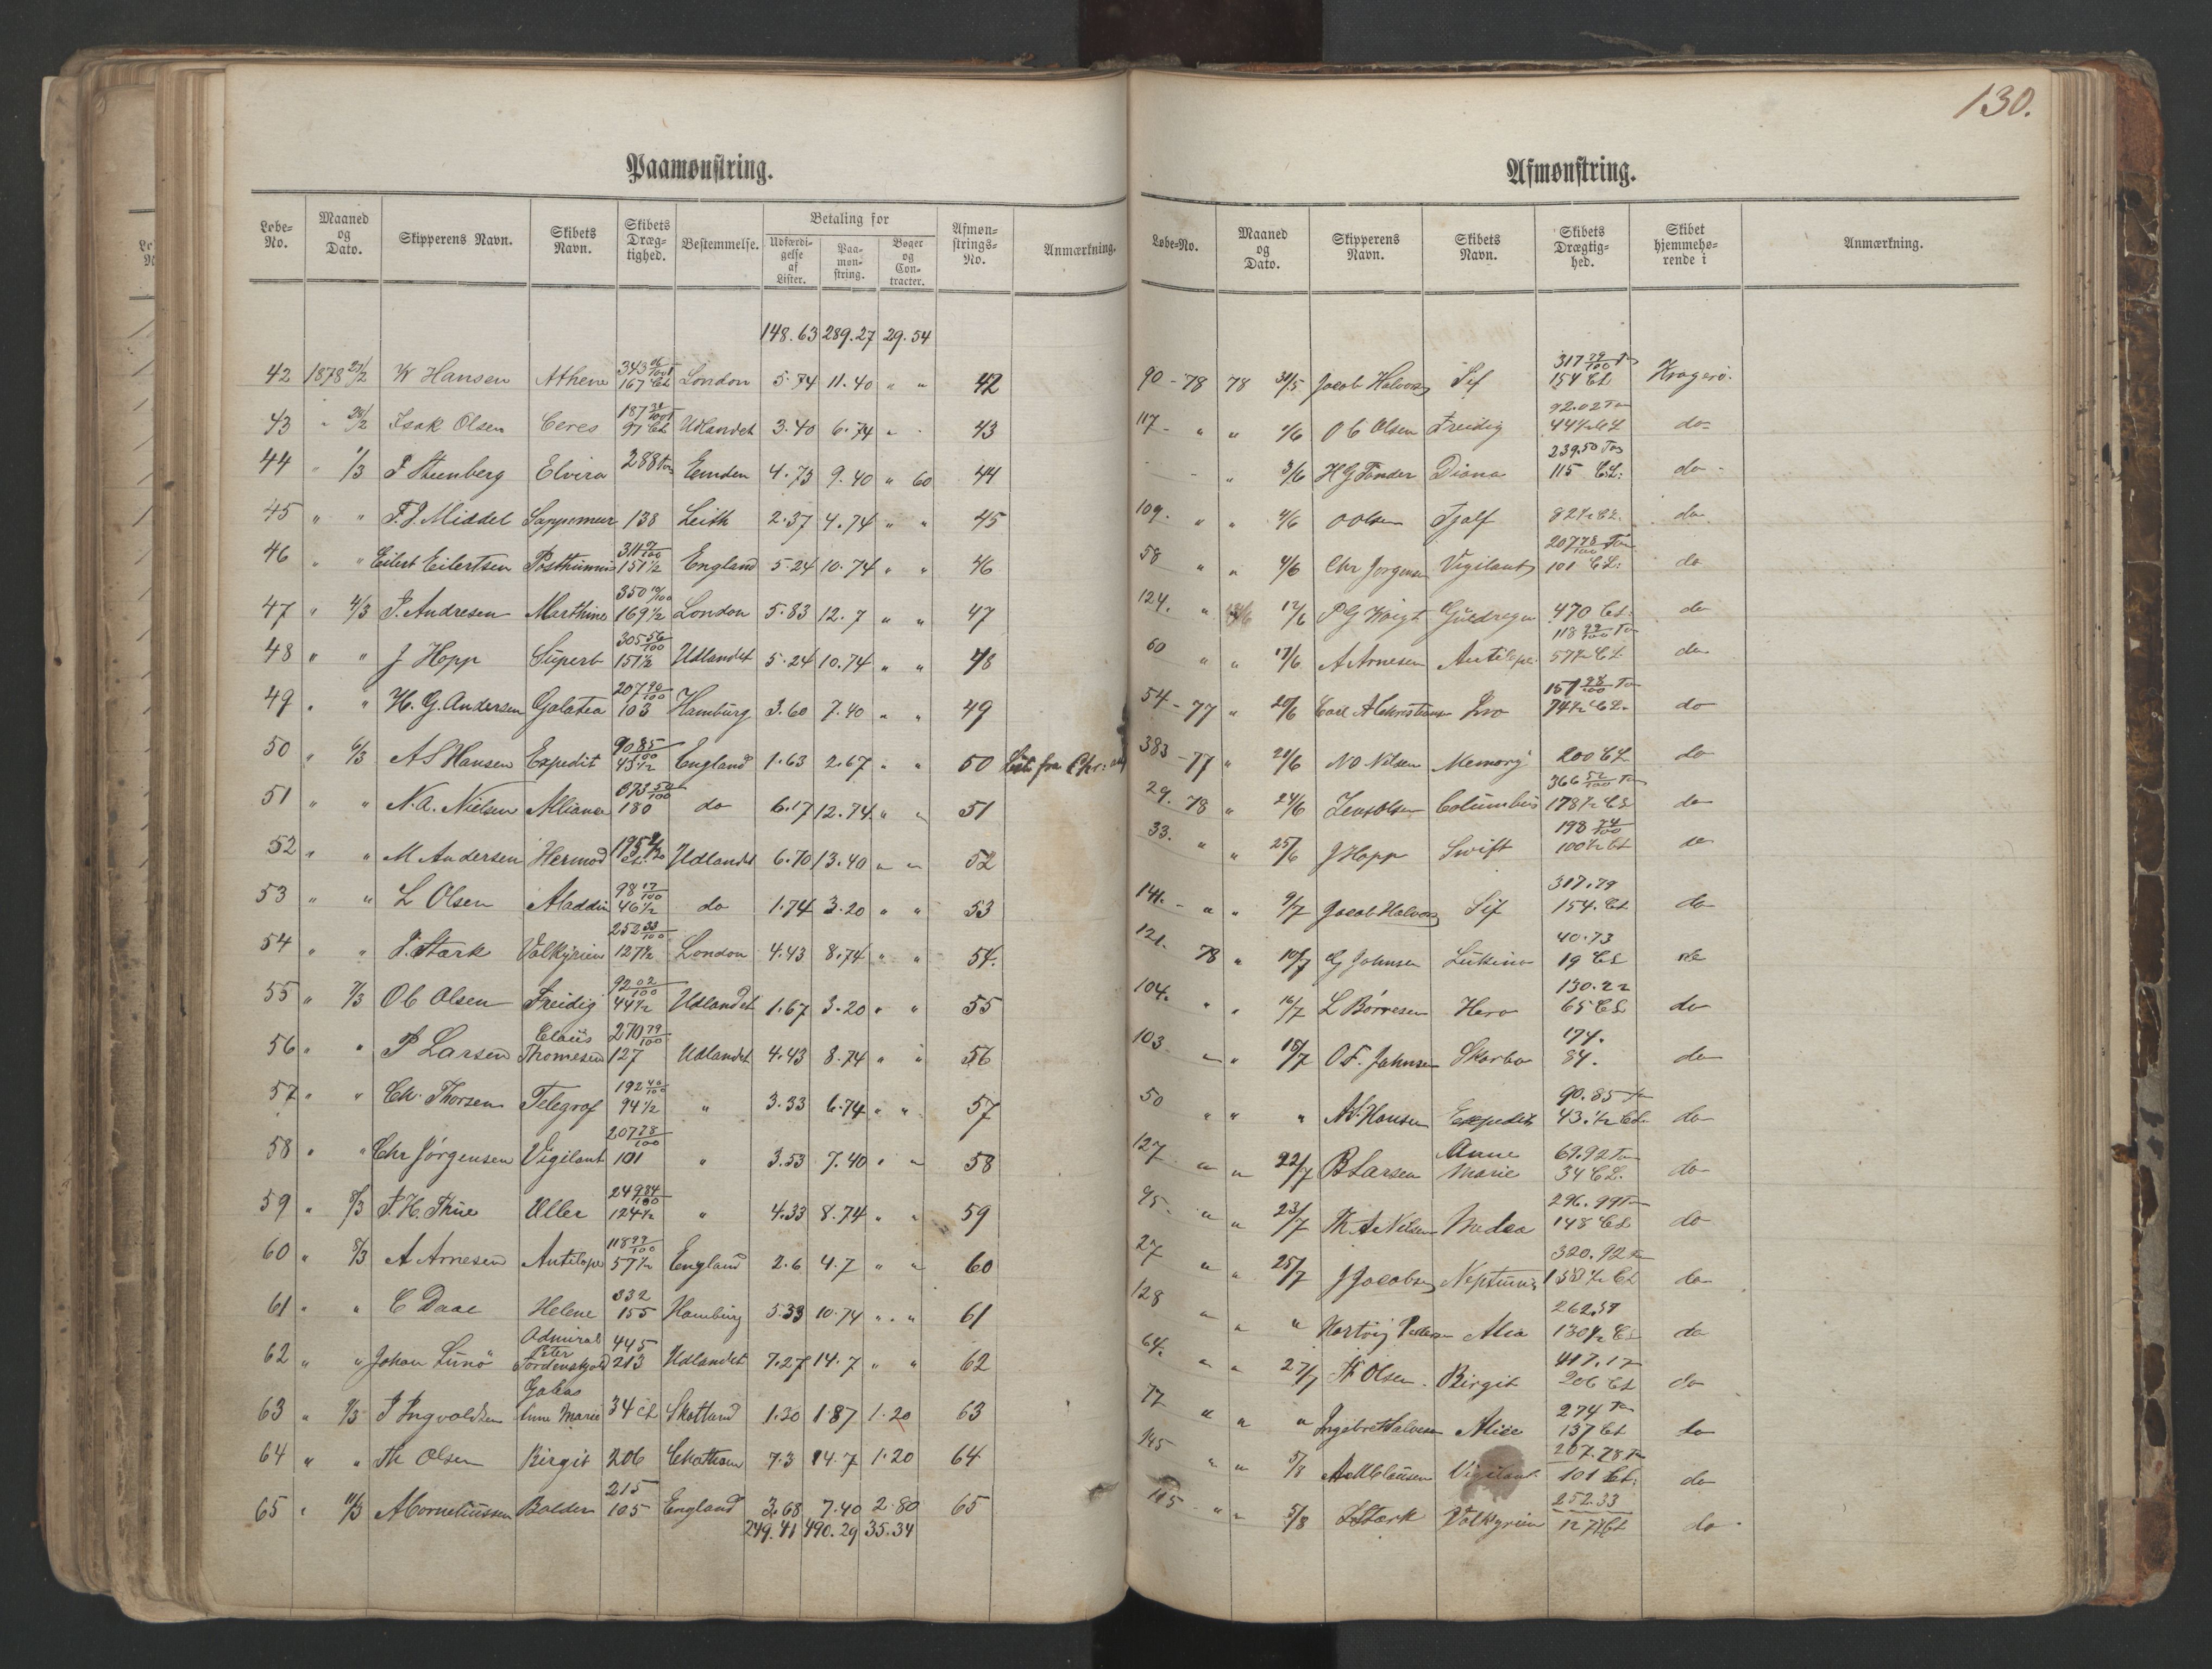 130.
Paamønstring.
Løbe-No. Maaned og Dato. Skipperens Navn. Skibets Navn. Skibets Dræg-tighed. Bestemmelse. Betaling for Udfærdi-gelse af Lister. Paa-møn-string. Bøger og Con-tracter. Afmøn-strings-No. Anmærkning.
148.63 289.27 29.54
42 1878 27/2 W Hansen Athene 343 96/100 T 167 CL London 5.74 11.40 " " 42
43 " 28/2 Isak Olsen Ceres 187 31/100 T 91 CL Udlandet 3.40 6.74 " " 43
44 " 1/3 P Steenberg Elvira 288 Tons Emden 4.73 9.40 " 60 44
45 " " F.J. Middel Sappemeer 138 Leith 2.37 4.74 " " 45
46 " " Eilert Eilertsen Posthumus 311 9/100 151 1/2 England 5.24 10.74 " " 46
47 " 4/3 P. Andresen Marthine 350 10/100 169 1/2 London 5.83 12.7 " " 47
48 " " J Hopp Superb 305 56/100 151 1/2 Udlandet 5.24 10.74 " " 48
49 " " H. G. Andersen Galatea 207 96/100 103 Hamburg 3.60 7.40 " " 49
50 " 6/3 A S Hansen Expedit 90 85/100 43 1/2 England 1.63 2.67 " " 50 Liste fra Chr:
51 " " N. A. Nielsen Alliance 373 50/100 180 do 6.17 12.74 " " 51
52 " " M Andersen Hermod 195 CL. Udlandet 6.70 13.40 " " 52
53 " " L Olsen Aladdin 98 17/100 46 1/2 do 1.74 3.20 " " 53
54 " " J. Stærk Valkyrien 252 33/100 127 1/2 London 4.43 8.74 " " 54.
55 " 7/3 O C Olsen Freidig 92 02/100 44 1/2 Udlandet 1.67 3.20 " " 55
56 " " P Larsen Claus Thomesen 270 79/100 127 Udlandet 4.43 8.74 " " 56
57 " " Chr. Thorsen Telegraf 192 40/100 94 1/2 " 3.33 6.74 " " 57
58 " " Chr Jørgensen Vigilant 207 78/100 101 " 3.53 7.40 " " 58
59 " 8/3 P. H. Thue Uller 249 84/100 124 1/2 " 4.33 8.74 " " 59
60 " 8/3 A Arnesen Antilope 118 99/100 57 1/2 England 2.6 4.7 " " 60
61 " " C Daae Helene 332 155 Hamburg 5.33 10.74 " " 61
62 " " Johan Lunø Admiral Peter Tordenskjold 445 213 Udlandet 7.27 14.7 " " 62
63 " 9/3 P Ingvaldsen Galeas Anne Marie 34 CL Skotland 1.30 1.87 1.20 63
64 " " Th Olsen Birgit 206 Chatham 7.3 14.7 1.20 64
65 " 11/3 A Corneliussen Balder 215 105 England 3.68 7.40 2.80 65
249.41 490.29 35.34
Afmønstring.
Løbe-No. Maaned og Dato. Skipperens Navn. Skibets Navn. Skibets Drægtig-hed. Skibet hjemmehø-rende i Anmærkning.
90 - 78 78 31/5 Jacob Halvors Sif 317 79/100 Tn 154 CL Kragerø.
117 - " " 1/6 O C Olsen Freidig 92.02 Tn 44 1/2 CL do
" 3/6 H G Tønder Diana 239.50 Tns 115 CL: do
109. " " 4/6 O Olsen Tjalf 82 1/2 CL. do
58 " " 4/6 Chr Jørgensen Vigilant 207 78/100 Tn 101 CL: do
124. " 12/6 P G Woigt Guldregn 470 CL. do
60 " " 17/6 A Arnesen Antilope 118 99/100 Tn 57 1/2 CL do
54 - 77 " 20/6 Carl A Christians Leo 151 98/100 Tn 74 1/2 CL. do
383 - 77 " 21/6 N O Nilsen Memory 200 CL do
29. 78 " 24/6 Jens Olsen Columbus 366 52/100 Tn 178 1/2 CL do
33. " " 25/6 J Hopp Swift 198 74/100 100 1/2 CL do
141. - " " 9/7 Jacob Halvors Sif 317.79 154. CL do
121. 78 " 10/7 G Johnsen Lukina 40.73 19 CL do
104. " " 16/7 L Børresen Hero 130.22 65 CL do
103 " " 18/7 O F. Johnsen Skarbo 174. 84. do
50 " " " A S. Hansen Expedit 90.85 Tn 43. 1/2 CL do
127 " " 22/7 B Larsen Anne Marie 69.92 Tn 34 CL. do
95. " " 23/7 Th A Nilsen Medea 296.99 Tn 148 CL do
27 " " 25/7 J Jacobsen Neptunus 320.92 Tn 158 1/2 CL do
128 " " " Hartvig Pettersen Alea 262.57 130 1/2 CL do
64. " " 27/7 Th Olsen. Birgit 417.17 206 CL do
77 " " " Ingebret Halvorsen Alice 274 Tn 137 CL do
145 " " 5/8 Clausen Vigilant 207.78 Tn 101 CL: do
115 " " 5/8 J Stærk Valkyrien 252.33 127 1/2 CL do